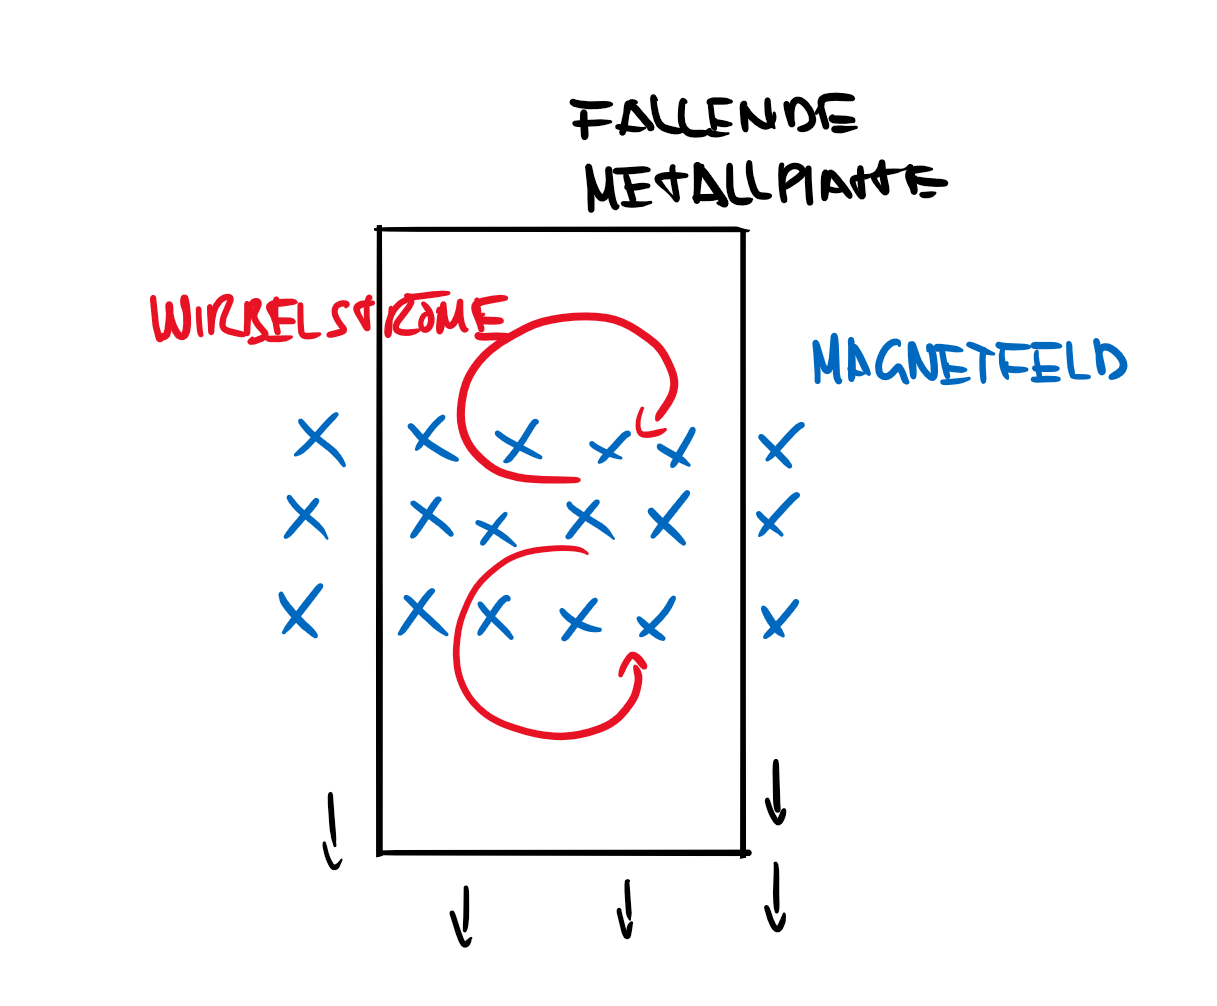 FALLENDE
METALLPLATTE
WIRBELSTRÖME
MAGNETFELD